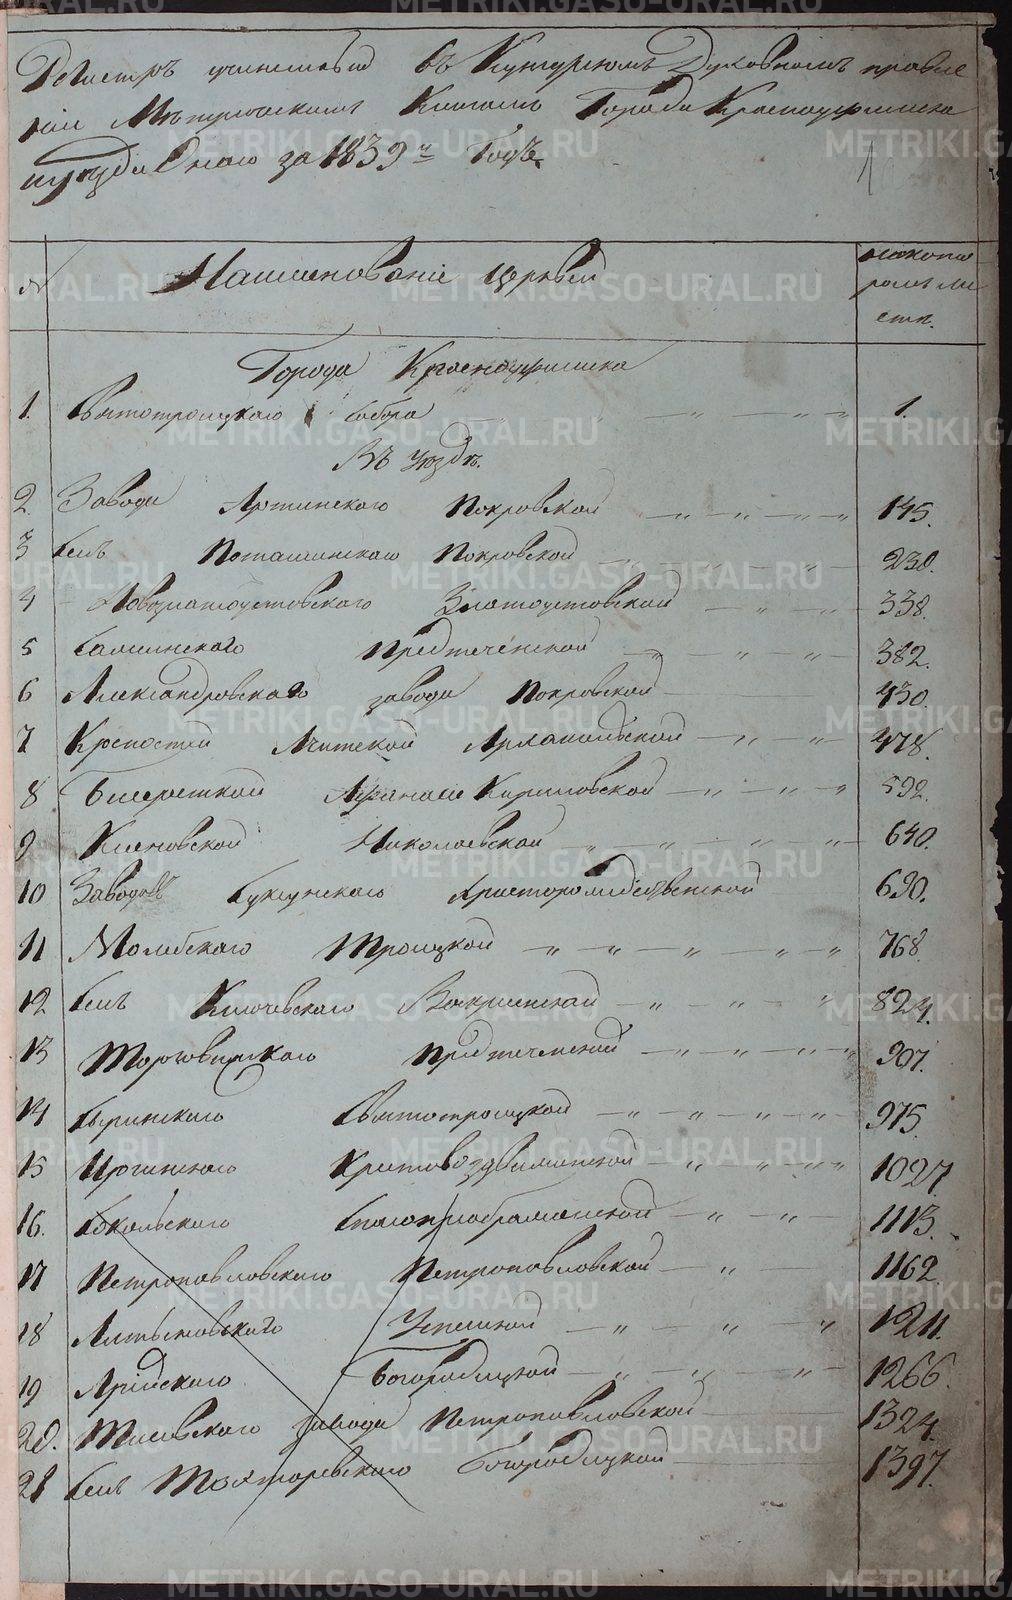 Регистръ учиненный въ Кунгурскомъ Духовномъ правле
нии Метрическимъ Книгамъ Города Красноуфимска
и уезда Онаго за 1839й Годъ.
№ Наименованiе церквей на кото
ромъ ли
стѣ.
Города Красноуфимска
1. Святотроицкаго Собора — „ — „ — 1.
Въ уездѣ.
2. Завода Артинскаго Покровской — „ — „ — „ — „ 145.
3 Селъ Поташинскаго Покровской — „ — „ — 238.
4 Новозлатоустовскаго Златоустовской — „ — „ — 338.
5 Сажинскаго Предтеченской — „ — „ — „ — 382.
6 Александровскаго завода Покровской 430.
7 Крепостей Ачитской Архангельской — „ — „ 478.
8 Бисертской Афанасие Кириловской — „ — „ — „ 592.
9 Кленовской Николаевской — „ — „ — „ — „ 640.
10 Заводовъ Суксунскаго Христорождественской 690.
11 Молебскаго Троицкой „ — „ — „ — „ — „ 768.
12 Селъ Ключевскаго Воскресенской — „ — „ — „ 824.
13 Торговижскаго Предтеченской — „ — „ — „ 907.
14 Сыринскаго Святотроицкой — „ — „ — „ — „ 975.
15 Иргинскаго Крестовоздвиженской — „ — „ — „ 1027.
16. Сокольскаго Спасопреображенской — „ — „ — 1113.
17 Петропавловскаго Петропавловской — „ — 1162
18 Алтыновскаго Успенской — „ — „ — „ 1211.
19 Арийскаго Богородицкой — „ — „ — „ 1266.
20. Тисовскаго завода Петропавловской 1324.
21 Селъ Тохтаревскаго Богородицкой 1397.
METRIKI.GASO-URAL.RU